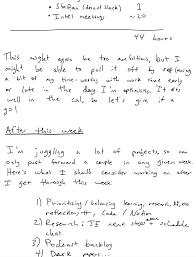 • StaRai (dead slack) 1
• Intel meetings ~20
44 hours
This might again be too ambitious, but I
might be able to pull it off by replacing
a bit of my time- with work time early
or late in the day. I'm optimistic. It fits
well in the cal, so let's give it a
go!
After this week
I'm juggling a lot of projects, so can
only push forward a couple in any given week.
Here's what I should consider working on after
I get through this week:
1) Prioritizing / balancing learning, research,
reflection ↔, Coda / Notion
2) Research: IE next steps + schedule
chat
3) Podcast backlog
4) Deck